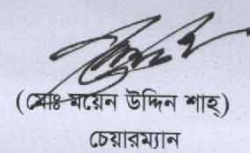 (মোঃ ময়েন উদ্দিন শাহ্)
চেয়ারম্যান